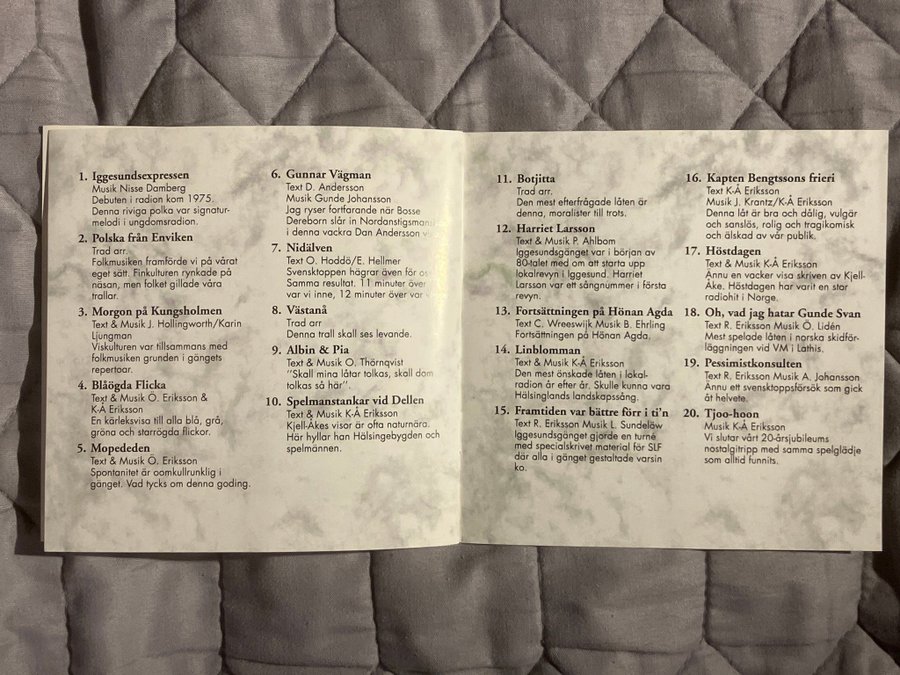 1. Iggesundsexpressen
Musik Nisse Damberg
Debuten i radion kom 1975.
Denna riviga polka var signatur-
melodi i ungdomsradion.
2. Polska från Enviken
Trad arr.
Folkmusiken framförde vi på vårat
eget sätt. Finkulturen rynkade på
näsan, men folket gillade våra
trallar.
3. Morgon på Kungsholmen
Text & Musik J. Hollingworth/Karin
Ljungman
Viskulturen var tillsammans med
folkmusiken grunden i gängets
repertoar.
4. Blåögda Flicka
Text & Musik Ö. Eriksson &
K-Å Eriksson
En kärleksvisa till alla blå, grå,
gröna och starrögda flickor.
5. Mopededen
Text & Musik Ö. Eriksson
Spontanitet är oomkullrunklig i
gänget. Vad tycks om denna goding.
6. Gunnar Vägman
Text D. Andersson
Musik Gunde Johansson
Jag ryser fortfarande när Bosse
Dereborn slår in Nordanstigsman
i denna vackra Dan Andersson
7. Nidälven
Text O. Hoddö/E. Hellmer
Svensktoppen hägrar även för
Samma resultat. 11 minuter över
var vi inne, 12 minuter över var
8. Västanå
Trad arr
Denna trall skall ses levande.
9. Albin & Pia
Text & Musik O. Thörnqvist
"Skall mina låtar tolkas, skall dom
tolkas så här".
10. Spelmanstankar vid Dellen
Text & Musik K-Å Eriksson
Kjell-Åkes visor är ofta naturnära.
Här hyllar han Hälsingebygden och
spelmännen.
11. Botjitta
Trad arr.
Den mest efterfrågade låten är
denna, moralister till trots.
12. Harriet Larsson
Text & Musik P. Ahlbom
Iggesundsgänget var i början av
80-talet med om att starta upp
lokalrevyn i Iggesund. Harriet
Larsson var ett sångnummer i första
revyn.
13. Fortsättningen på Hönan Agda
Text C. Wreeswijk Musik B. Ehrling
Fortsättningen på Hönan Agda.
14. Linblomman
Text & Musik K-Å Eriksson
Den mest önskade låten i lokal-
radion år efter år. Skulle kunna vara
Hälsinglands landskapssång.
15. Framtiden var bättre förr i ti'n
Text R. Eriksson Musik L. Sundelöw
Iggesundsgänget gjorde en turné
med specialskrivet material för SLF
där alla i gänget gestaltade varsin
ko.
16. Kapten Bengtssons frieri
Text K-Å Eriksson
Musik J. Krantz/K-Å Eriksson
Denna låt är bra och dålig, vulgär
och sanslös, rolig och tragikomisk
och älskad av vår publik.
17. Höstdagen
Text & Musik K-Å Eriksson
Ännu en vacker visa skriven av Kjell-
Åke. Höstdagen har varit en stor
radiohit i Norge.
18. Oh, vad jag hatar Gunde Svan
Text R. Eriksson Musik Ö. Lidén
Mest spelade låten i norska skidför-
läggningen vid VM i Lathis.
19. Pessimistkonsulten
Text R. Eriksson Musik A. Johansson
Ännu ett svensktoppsförsök som gick
åt helvete.
20. Tjoo-hoon
Musik K-Å Eriksson
Vi slutar vårt 20-årsjubileums
nostalgitripp med samma spelglädje
som alltid funnits.